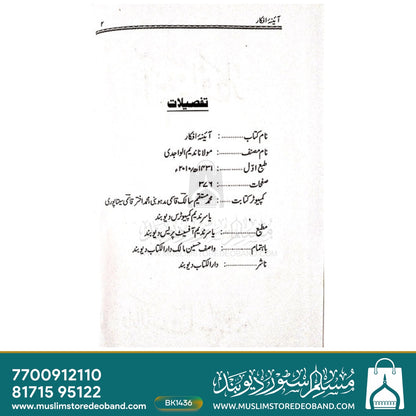 آئینۂ افکار
۲
تفصیلات
نام کتاب ............: آئینۂ افکار
نام مصنف ............: مولانا ندیم الواجدی
طبع اوّل ............: ۱۴۳۱ھ/۲۰۱۰ء
صفحات ............: ۳۷۶
کمپیوٹر کتابت ......: محمد مستقیم سالک قاسمی مدہوبنی، محمد اختر قاسمی سیتاپوری
یاسر ندیم کمپیوٹرس دیوبند
مطبع ............: یاسر ندیم آفسیٹ پریس دیوبند
باہتمام ............: واصف حسین مالک دارالکتاب دیوبند
ناشر ............: دارالکتاب دیوبند
7700912110
81715 95122
www.muslimstoredeoband.com
BK1436
مسلم سٹور دیوبند
WWW.MUSLIMSTOREDEOBAND.COM